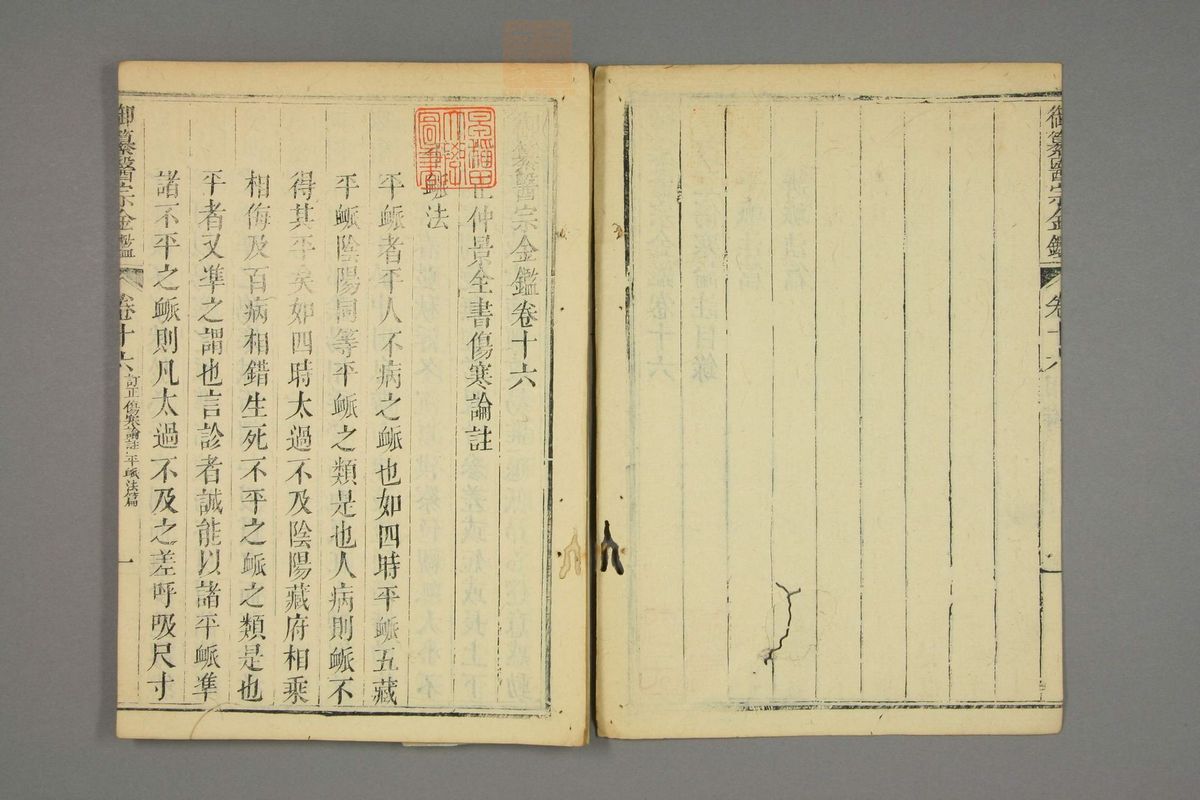 御纂醫宗金鑑 卷十六
纂醫宗金鑑卷十六
正仲景全書傷寒論註
脈法
平脈者平人不病之脈也如四時平脈五藏
平脈陰陽同等平脈之類是也人病則脈不
得其平矣如四時太過不及陰陽藏府相乘
相侮及百病相錯生死不平之脈之類是也
平者又準之謂也言診者誠能以諸平脈準
諸不平之脈則凡太過不及之差呼吸尺寸
御纂醫宗金鑑 卷十六 訂正傷寒論註 平脈法篇 一